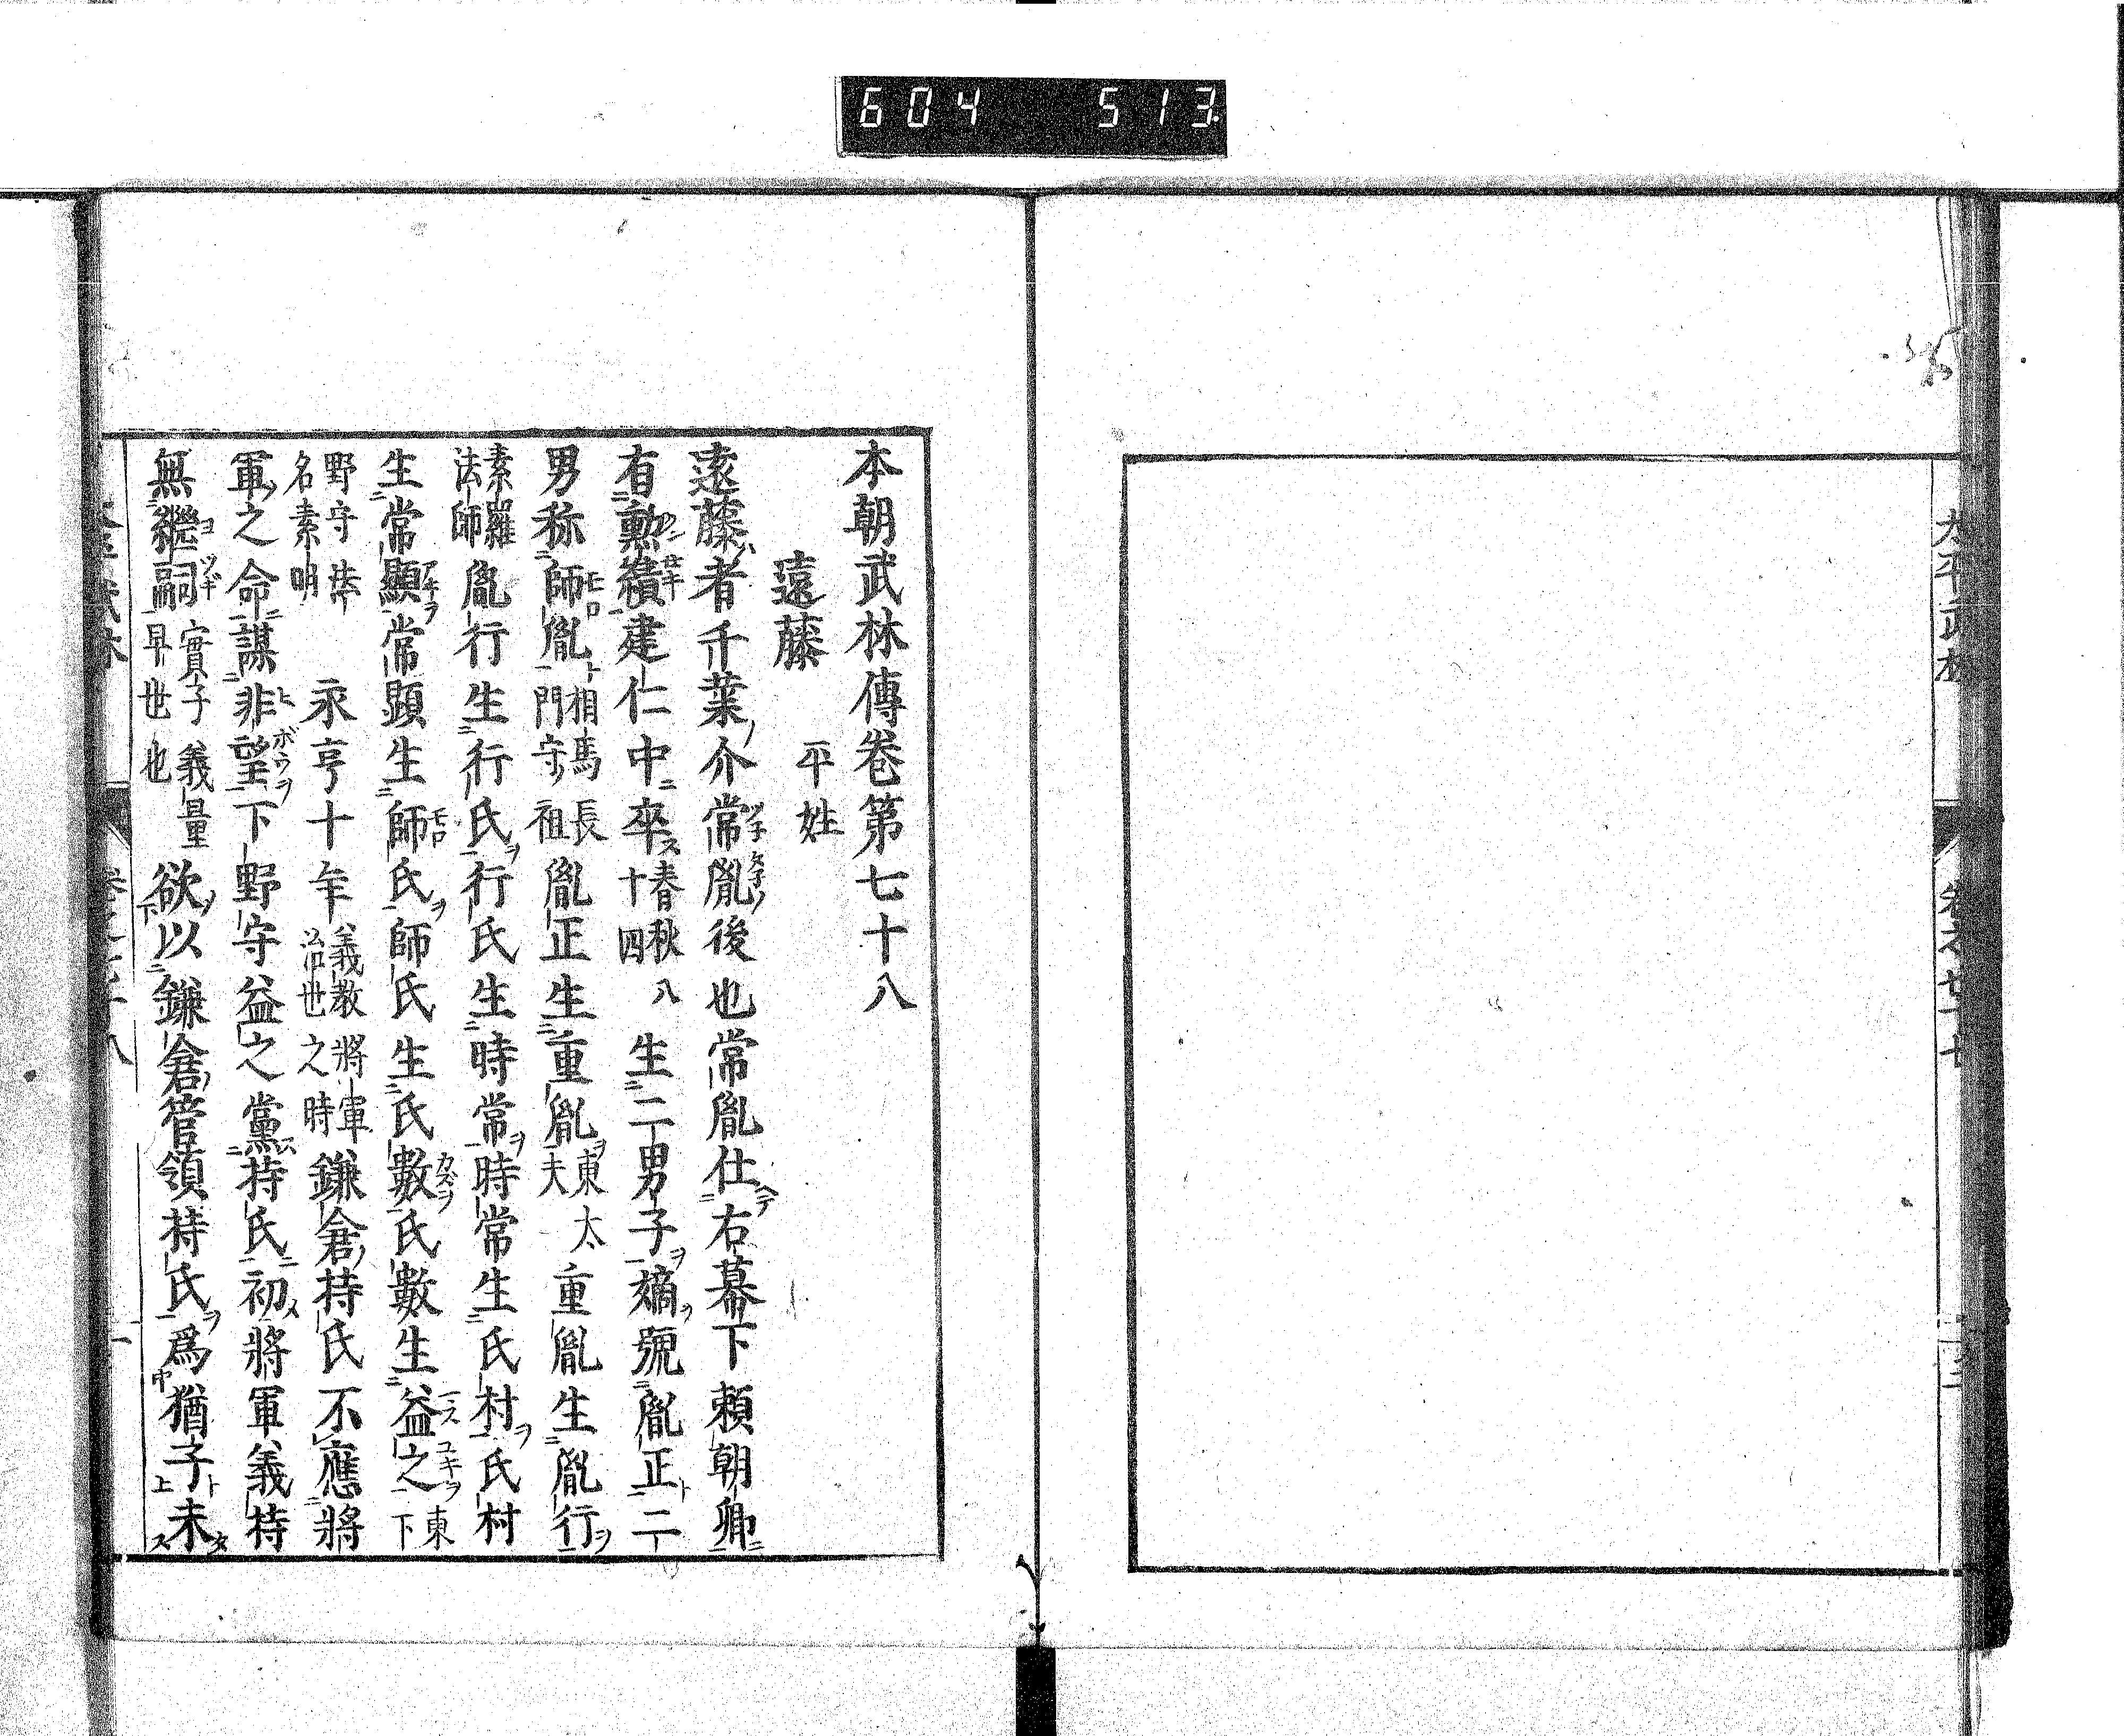 604 513
本朝武林傳卷第七十八
遠藤 平姓
遠藤者千葉介常胤後也常胤仕右幕下頼朝卿
有勲績建仁中卒春秋八十四生二男子嫡號胤正二
男称師胤相馬長門守祖胤正生重胤東太夫重胤生胤行
素羅法師胤行生行氏行氏生時常時常生氏村氏村
生常顯常顕生師氏師氏生氏數氏數生益之東下
野守法名素明永亨十年義教將軍治世之時鎌倉持氏不應將
軍之命謀非望下野守益之黨持氏初將軍義持
無繼嗣實子義量早世也欲以鎌倉管領持氏爲猶子未